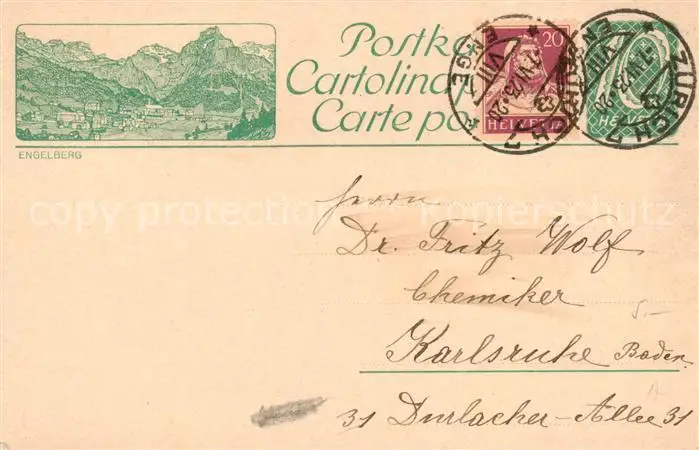 Postka
Cartolina
Carte po
ENGELBERG
20
HELVETIA
10
HELVETIA
ZÜRICH 7
ENGE
VIII
copy protection Kopierschutz
Herrn
Dr. Fritz Wolf
Chemiker
5.-
Karlsruhe Baden
31 Durlacher-Allee 31